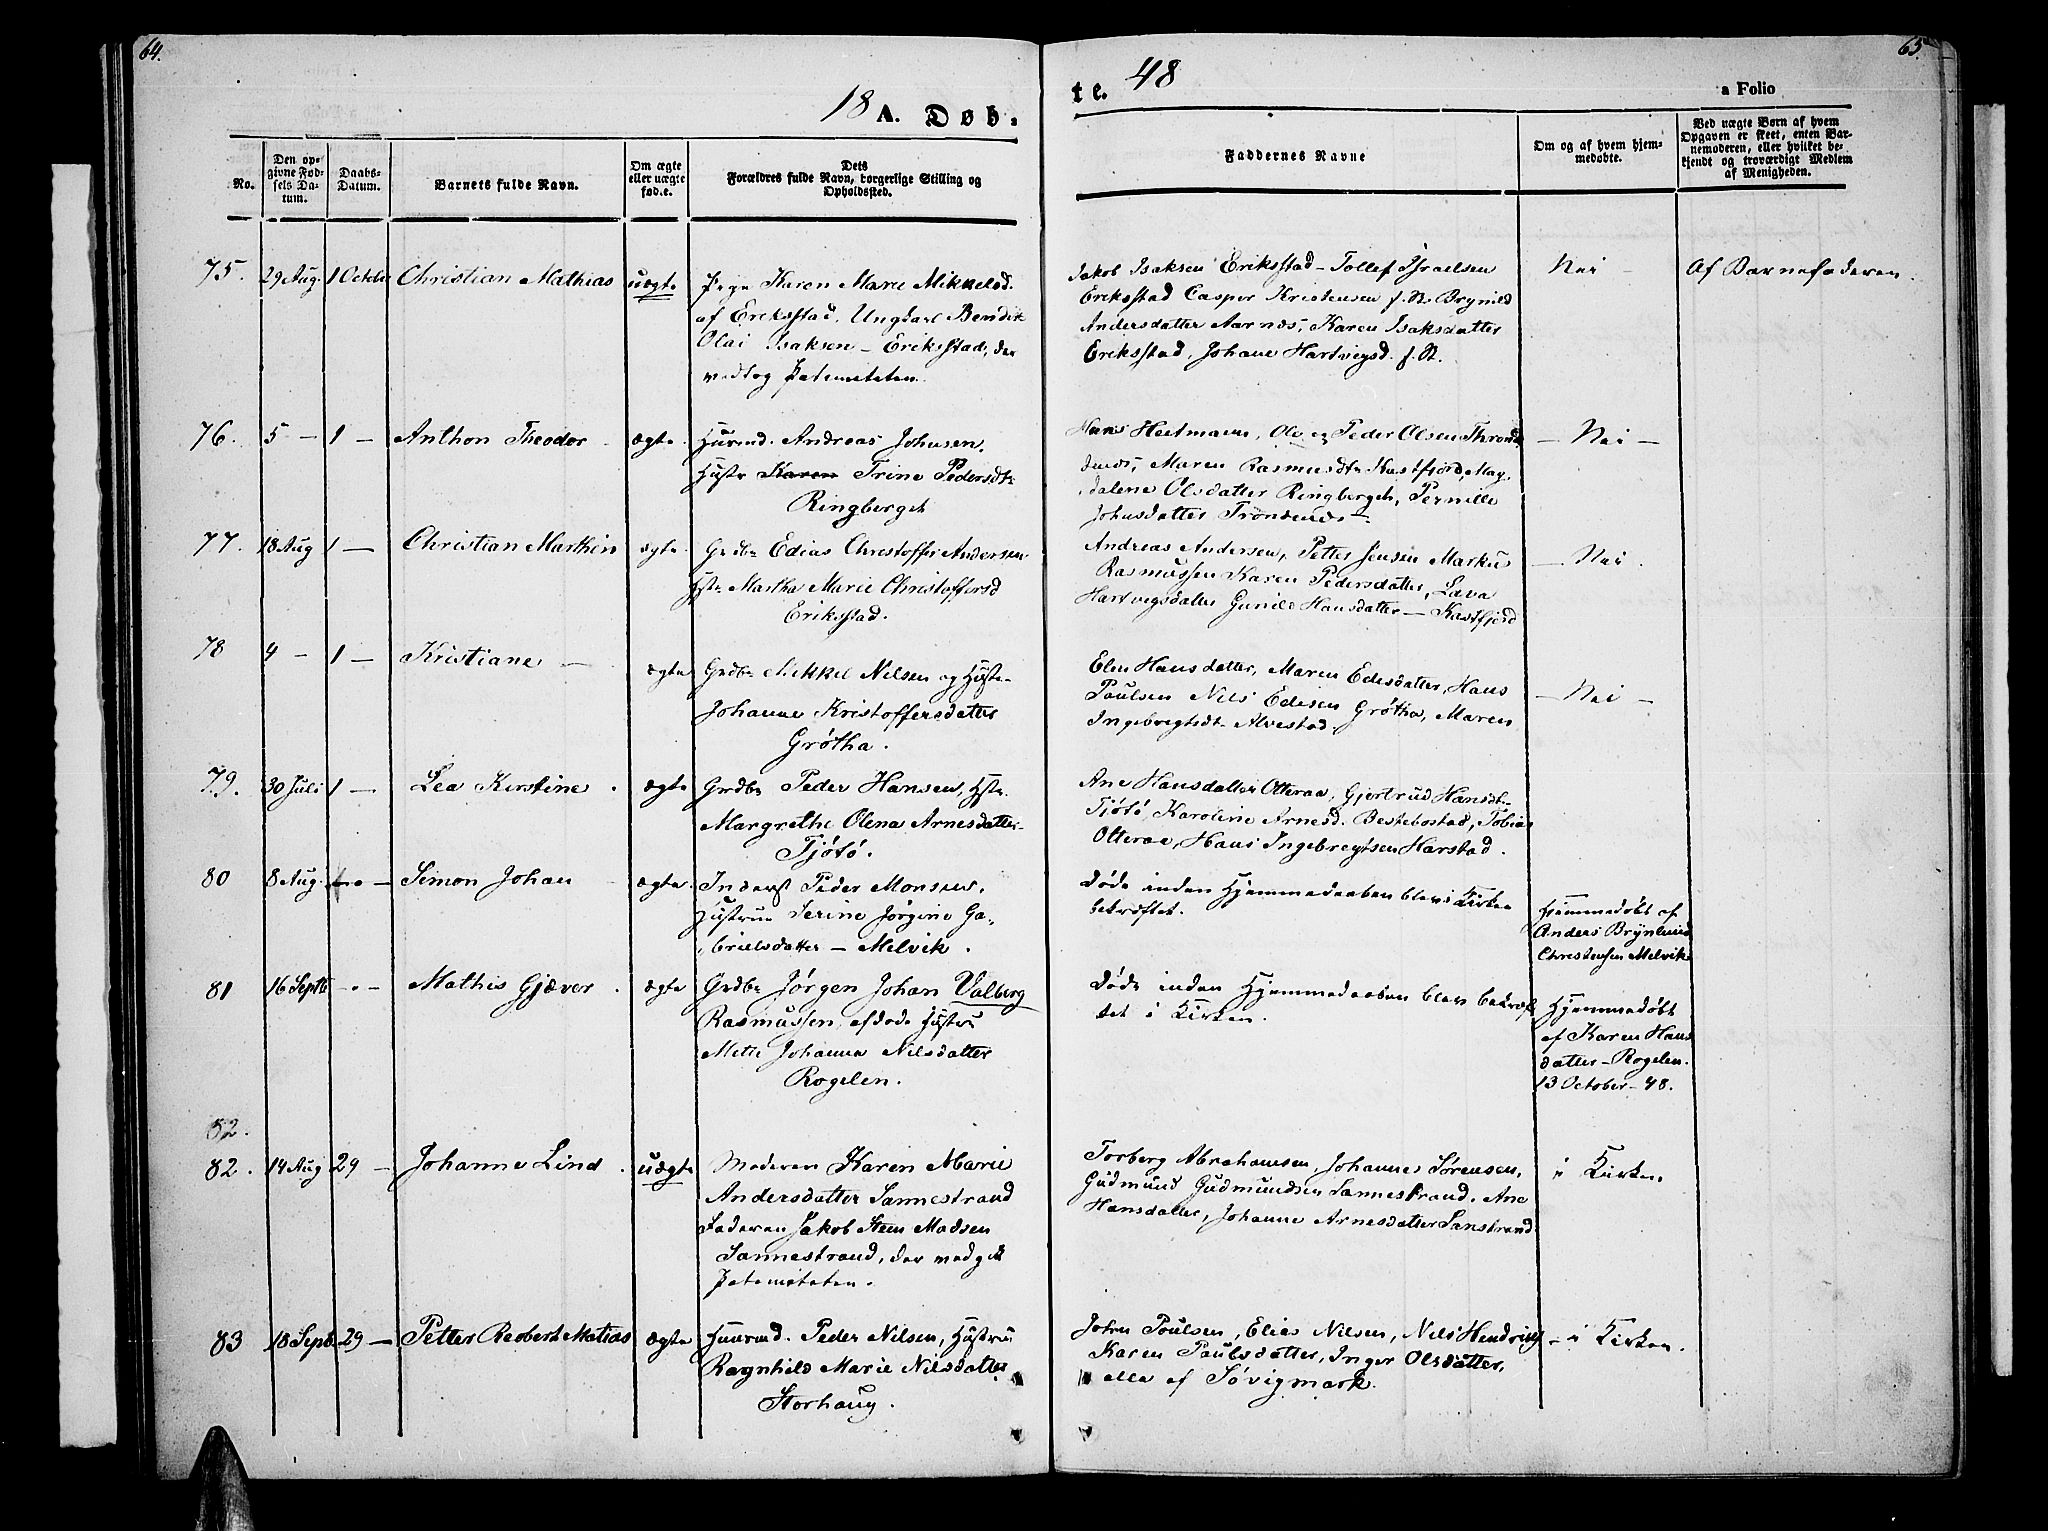 64.
65.
18 A. Døb-
te. 48
a Folio
No.
Den op-
givne Fød-
sels Da-
tum.
Daabs-
Datum.
Barnets fulde Navn.
Om ægte
eller uægte
fød.e.
Dets
Forældres fulde Navn, borgerlige Stilling og
Opholdssted.
Faddernes Navne
Om og af hvem hjem-
medøbte.
Ved uægte Børn af hvem
Opgaven er skeet, enten Bar-
nemoderen, eller hvilket be-
kjendt og troværdigt Medlem
af Menigheden.
75. 29 Aug. 1 Octobr Christian Mathias uægte Pige Karen Marie Mikkelsd.
af Eriksstad, Ungkarl Bendik
Olai Isaksen – Eriksstad, der
vedtog Paterniteten.
Jakob Isaksen Eriksstad – Tollef Israelsen
Eriksstad Casper Kristensen f. St. Brynild
Andersdatter Aarnæs, Karen Isaksdatter
Eriksstad, Johane Hartvigsd. f. St.
Nei –
Af Barnefaderen.
76. 5 – 1 – Anthon Theodor – ægte. Huusmd. Andreas Johnsen,
Hustr Karen Trine Pedersdtr
Ringberget
Hans Heitmann, Ole og Peder Olsen Thrond-
denæs, Maren Rasmusdtr Kastfjord, Mag-
dalene Olsdatter Ringberget, Pernille
Johnsdatter Trondenæs –
– Nei –
77. 18 Aug 1 – Christian Marthin ægte. Grdbr Edias Christoffer Andersen
Hstr. Martha Marie Christoffersd
Eriksstad.
Andreas Andersen, Petter Jensen Markus
Rasmussen Karen Pedersdatter, Lava
Hartvigsdatter Gunild Hansdatter – Kastfjord
– Nei.
78 4 – 1 – Kristiane – ægte Grdbr Mikkel Nilsen og Hustr.
Johanne Kristoffersdatter
Grøtha.
Elen Hansdatter, Maren Edisdatter, Hans
Poulsen Nils Edisen Grøtha, Maren
Ingebregtsdt. Alvestad
– Nei –
79. 30 Juli 1 – Lea Kirstine. ægte Grdbr Peder Hansen, Hstr.
Margrethe Olena Arnesdatter
Tjøtø.
Ane Hansdatter Otteraa, Gjertrud Hansdt.
Tjøtø, Karoline Arnesd. Bestebostad, Tobias
Otteraa, Hans Ingebregtsen Harstad.
80 8 Aug. Simon Johan – ægte. Inderst Peder Monsen,
Hustrue Serine Jørgine Ga-
brielsdatter – Melvik.
Døde inden Hjemmedaaben blev i Kirken
bekræftet.
Hjemmedøbt af
Anders Brynlund
Christensen Melvik
81 16 Septb – Mathis Gjæver. ægte Grdbr Jørgen Johan Valberg
Rasmussen, afdøde Hustru
Mette Johanna Nilsdatter
Rogelen.
Døde inden Hjemmedaaben blev bekræf-
tet i Kirken.
Hjemmedøbt
af Karen Hans
datter – Rogelen.
13 October – 48.
82.
82. 14 Aug 29 – Johanne Lind. uægte Moderen Karen Marie
Andersdatter Sannestrand
Faderen Jakob Steen Madsen
Sannestrand, der vedgik
Paterniteten.
Torberg Abrahamsen, Johannes Sørensen,
Gudmund Gudmundsen Sannestrand. Ane
Hansdatter, Johanne Arnesdatter Sanstrand
i Kirken.
83 18 Septb 29 – Petter Reobert Matias ægte Huusmd. Peder Nilsen, Hustru
Ragnhild Marie Nilsdatter
Storhaug.
John Poulsen, Elias Nilsen, Nils Hendriks
Karen Paulsdatter, Inger Olsdatter,
alle af Søvigmark.
– i Kirken.